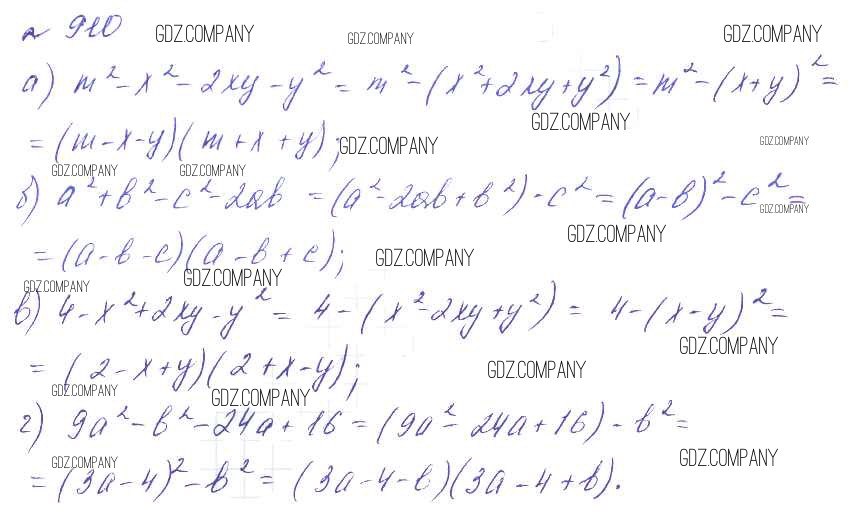 № 910 GDZ.COMPANY GDZ.COMPANY GDZ.COMPANY
а) m² - x² - 2xy - y² = m² - (x² + 2xy + y²) = m² - (x+y)² =
GDZ.COMPANY
= (m - x - y)(m + x + y); GDZ.COMPANY GDZ.COMPANY
GDZ.COMPANY GDZ.COMPANY
б) a² + b² - c² - 2ab = (a² - 2ab + b²) - c² = (a - b)² - c² =
GDZ.COMPANY
GDZ.COMPANY
= (a - b - c)(a - b + c); GDZ.COMPANY
GDZ.COMPANY GDZ.COMPANY
в) 4 - x² + 2xy - y² = 4 - (x² - 2xy + y²) = 4 - (x - y)² =
GDZ.COMPANY
= (2 - x + y)(2 + x - y); GDZ.COMPANY
GDZ.COMPANY GDZ.COMPANY
г) 9a² - b² - 24a + 16 = (9a² - 24a + 16) - b² =
GDZ.COMPANY GDZ.COMPANY
= (3a - 4)² - b² = (3a - 4 - b)(3a - 4 + b).